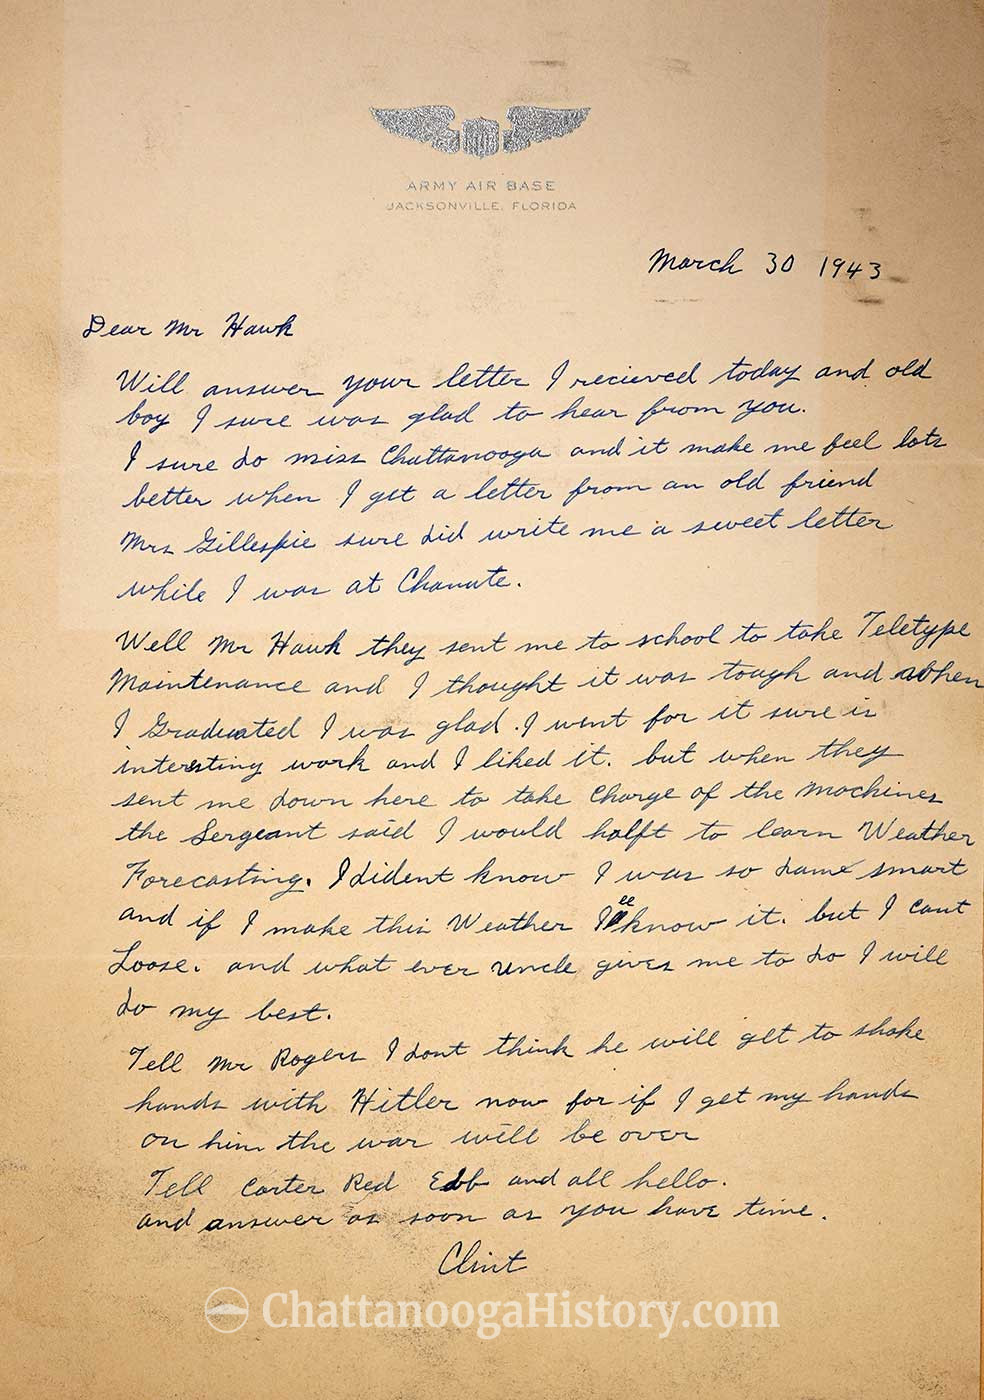 ARMY AIR BASE
JACKSONVILLE, FLORIDA
March 30 1943
Dear Mr Hawk
Will answer your letter I recieved today and old
boy I sure was glad to hear from you.
I sure do miss Chattanooga and it make me feel lots
better when I get a letter from an old friend
Mrs Gillespie sure did write me a sweet letter
while I was at Chanute.
Well Mr Hawk they sent me to school to take Teletype
Maintenance and I thought it was tough and when
I Graduated I was glad. I went for it sure is
interesting work and I liked it. but when they
sent me down here to take charge of the machines
the Sergeant said I would halft to learn Weather
Forecasting. I dident know I was so dame smart
and if I make this Weather I'll know it. but I cant
Loose. and what ever uncle gives me to do I will
do my best.
Tell Mr Rogers I dont think he will get to shake
hands with Hitler now for if I get my hands
on him the war will be over
Tell Carter Red Ebb and all hello.
and answer as soon as you have time.
Clint
ChattanoogaHistory.com